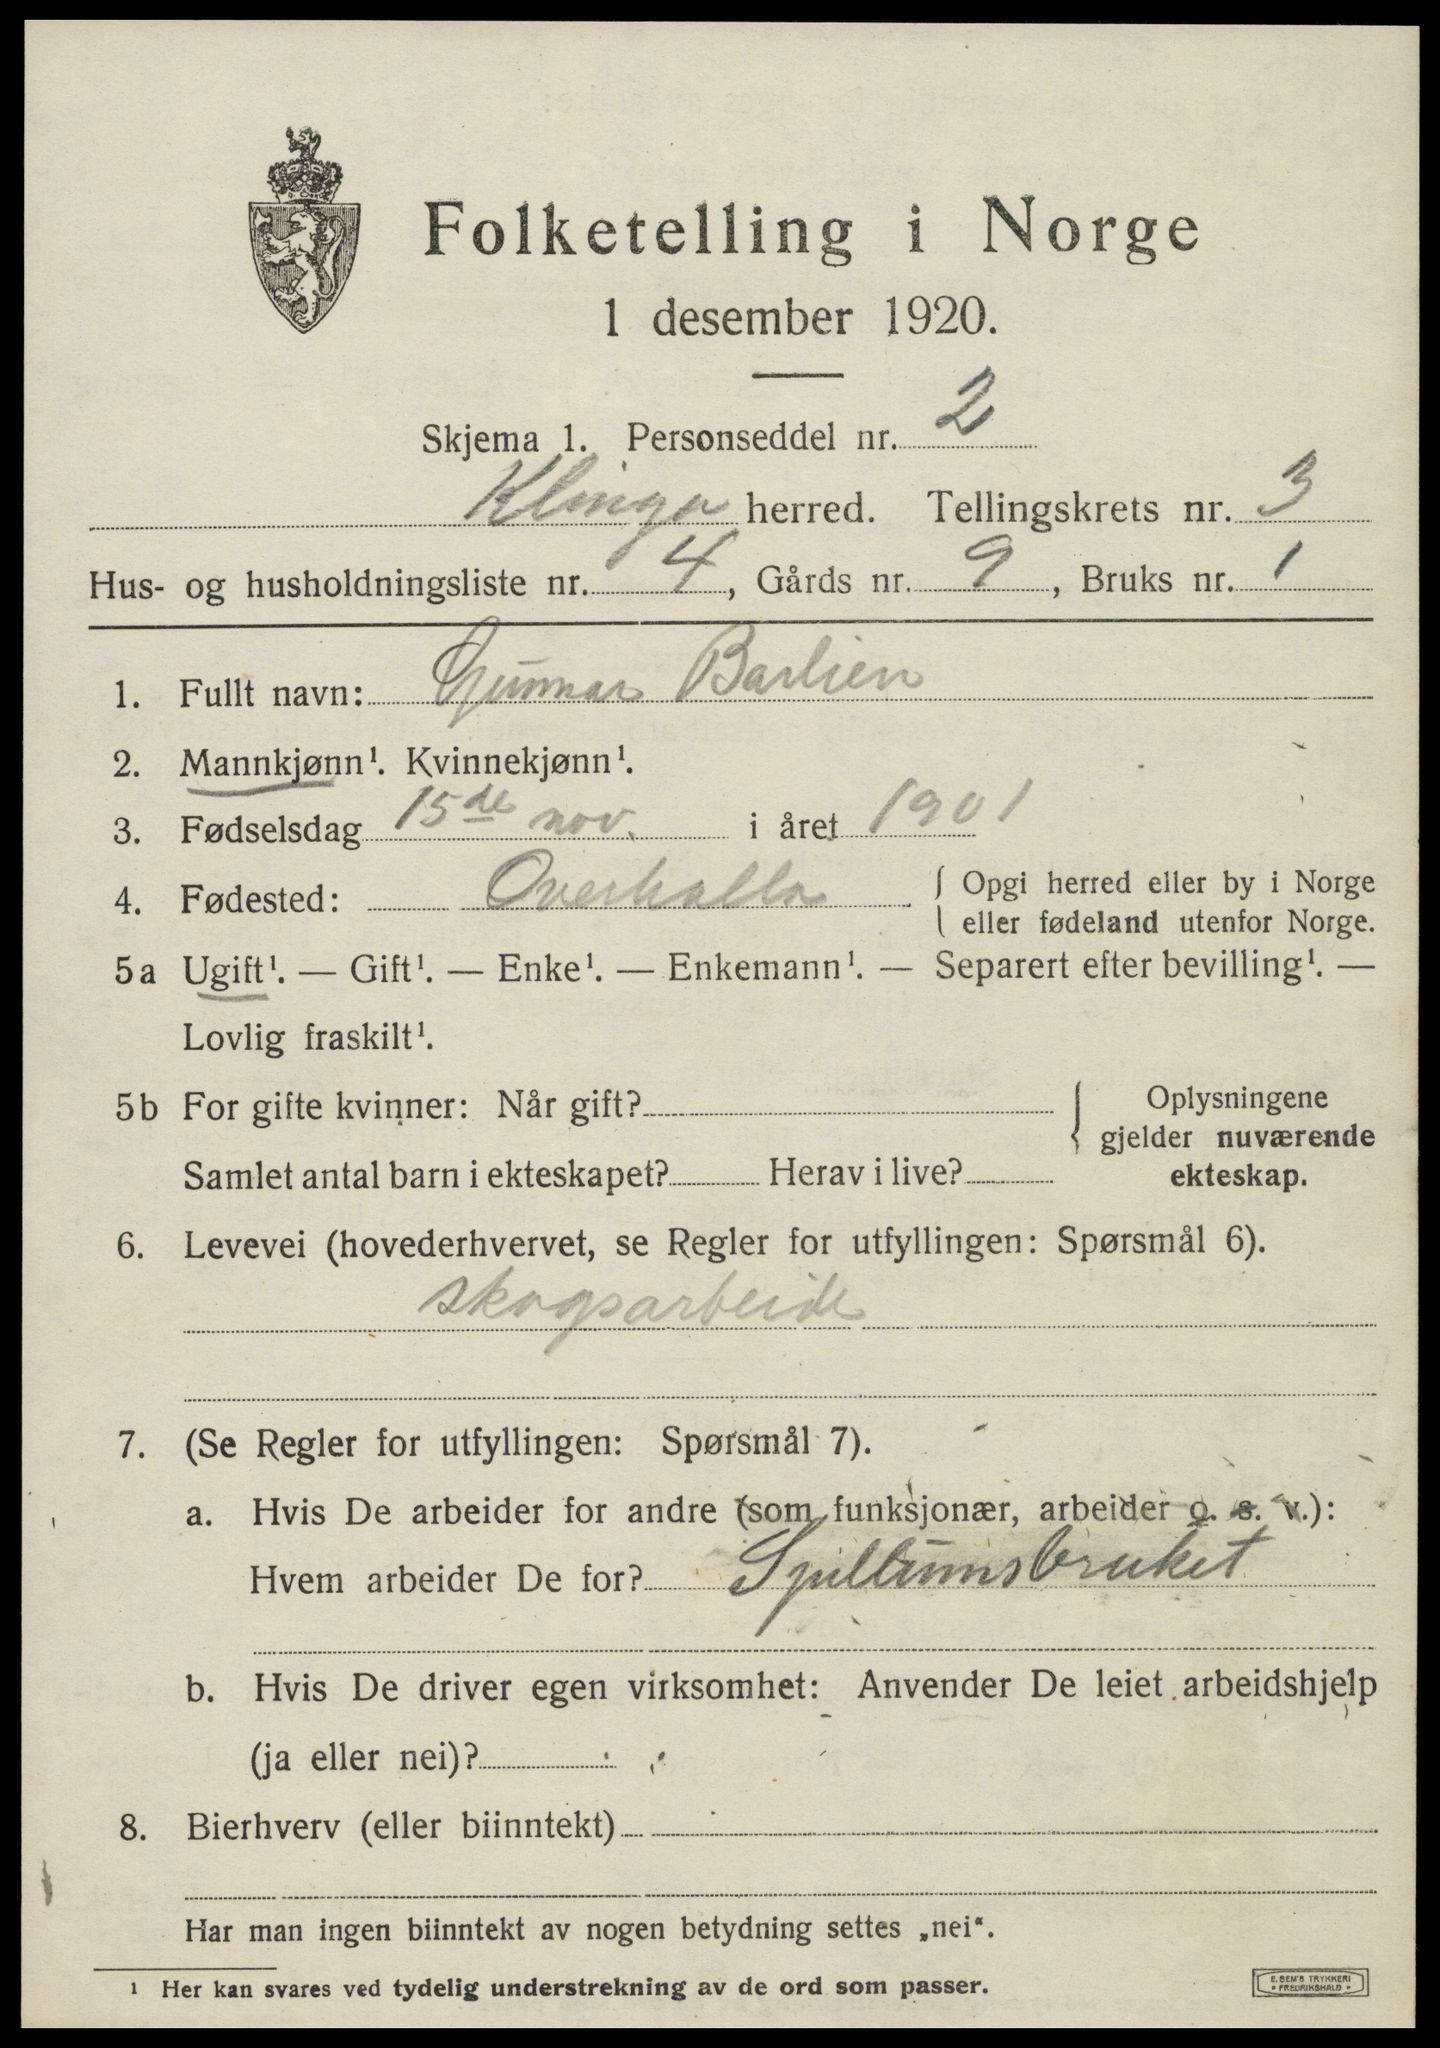 Folketelling i Norge
1 desember 1920.
Skjema 1. Personseddel nr. 2
Klinga herred. Tellingskrets nr. 3
Hus- og husholdningsliste nr. 4, Gårds nr. 9, Bruks nr. 1
1. Fullt navn: Gunnar Barlien
2. Mannkjønn¹. Kvinnekjønn¹.
3. Fødselsdag 15de nov. i året 1901
4. Fødested: Overhalla { Opgi herred eller by i Norge
eller fødeland utenfor Norge.
5a Ugift¹. — Gift¹. — Enke¹. — Enkemann¹. — Separert efter bevilling¹. —
Lovlig fraskilt¹.
5b For gifte kvinner: Når gift? { Oplysningene
gjelder nuværende
Samlet antal barn i ekteskapet? Herav i live? ekteskap.
6. Levevei (hovederhvervet, se Regler for utfyllingen: Spørsmål 6).
skogsarbeide
7. (Se Regler for utfyllingen: Spørsmål 7).
a. Hvis De arbeider for andre (som funksjonær, arbeider o. s. v.):
Hvem arbeider De for? Spillumsbruket
b. Hvis De driver egen virksomhet: Anvender De leiet arbeidshjelp
(ja eller nei)?
8. Bierhverv (eller biinntekt)
Har man ingen biinntekt av nogen betydning settes „nei“.
¹ Her kan svares ved tydelig understrekning av de ord som passer.
E. SEM'S TRYKKERI
• FREDRIKSHALD •